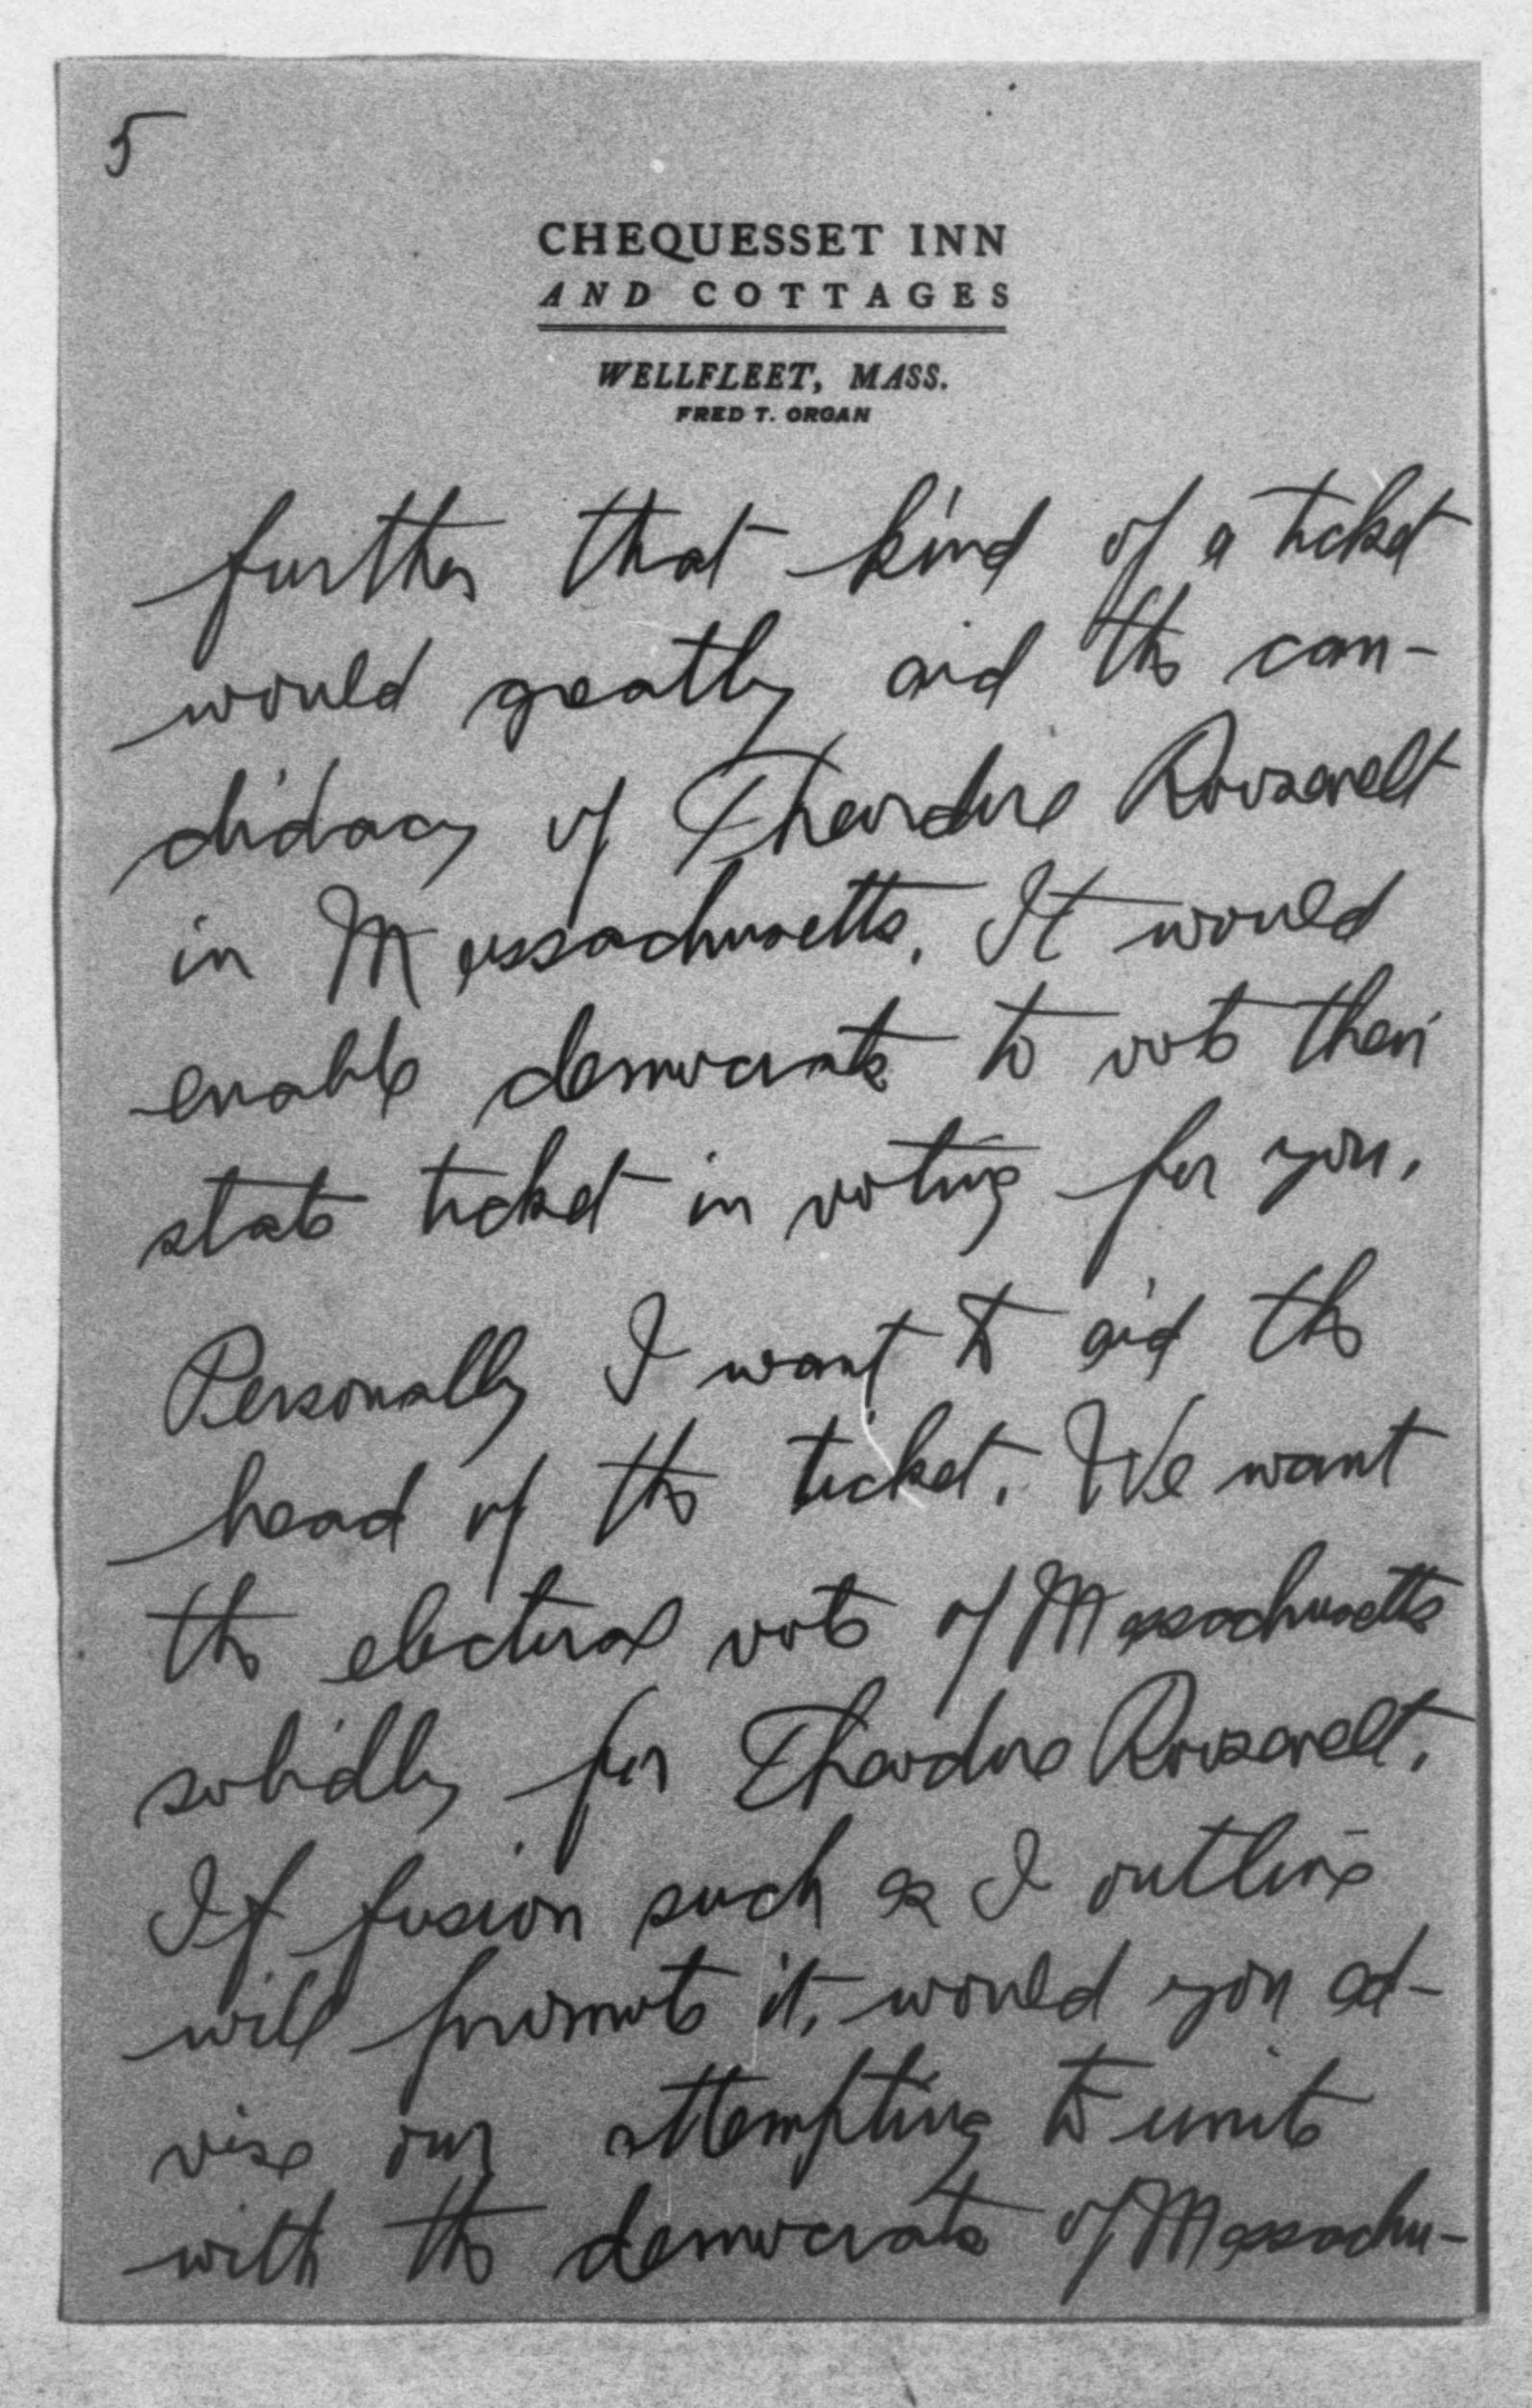 5
CHEQUESSET INN
AND COTTAGES
WELLFLEET, MASS.
FRED T. ORGAN
further that kind of a ticket
would greatly aid the can-
didacy of Theodore Roosevelt
in Massachusetts. It would
enable democrats to vote their
state ticket in voting for you.
Personally I want to aid the
head of the ticket. We want
the electoral vote of Massachusetts
solidly for Theodore Roosevelt.
If fusion such as I outline
will promote it, would you ad-
vise our attempting to unite
with the democrats of Massachu-